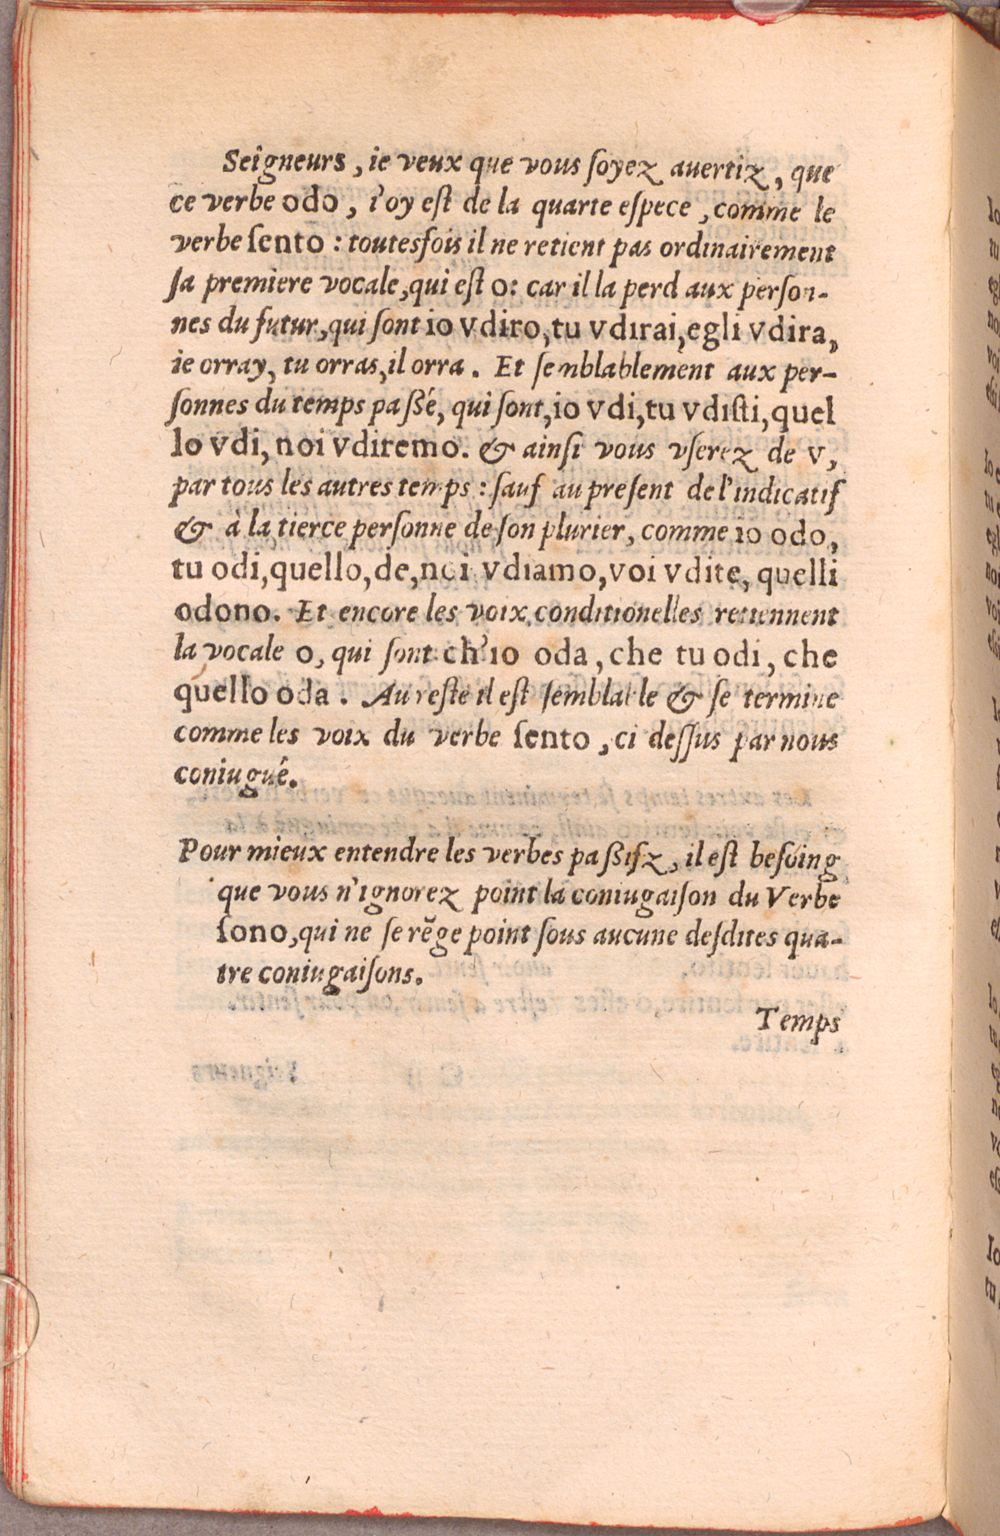 Seigneurs, ie veux que vous ſoyez auertiz, que
ce verbe odo, i'oy eſt de la quarte eſpece, comme le
verbe ſento : toutesfois il ne retient pas ordinairement
ſa premiere vocale, qui eſt o: car il la perd aux perſon-
nes du futur, qui ſont io vdiro, tu vdirai, egli vdira,
ie orray, tu orras, il orra. Et ſemblablement aux per-
ſonnes du temps paßé, qui ſont, io vdi, tu vdiſti, quel
lo vdi, noi vdiremo. & ainſi vous vſerez de v,
par tous les autres temps : ſauf au preſent de l'indicatif
& à la tierce perſonne de ſon plurier, comme io odo,
tu odi, quello, de, noi vdiamo, voi vdite, quelli
odono. Et encore les voix conditionelles retiennent
la vocale o, qui ſont ch'io oda, che tu odi, che
quello oda. Au reſte il eſt ſemblable & ſe termine
comme les voix du verbe ſento, ci deſſus par nous
coniugué.
Pour mieux entendre les verbes paßifz, il eſt beſoing
que vous n'ignorez point la coniugaiſon du Verbe
ſono, qui ne ſe rẽge point ſous aucune deſdites qua-
tre coniugaiſons.
Temps